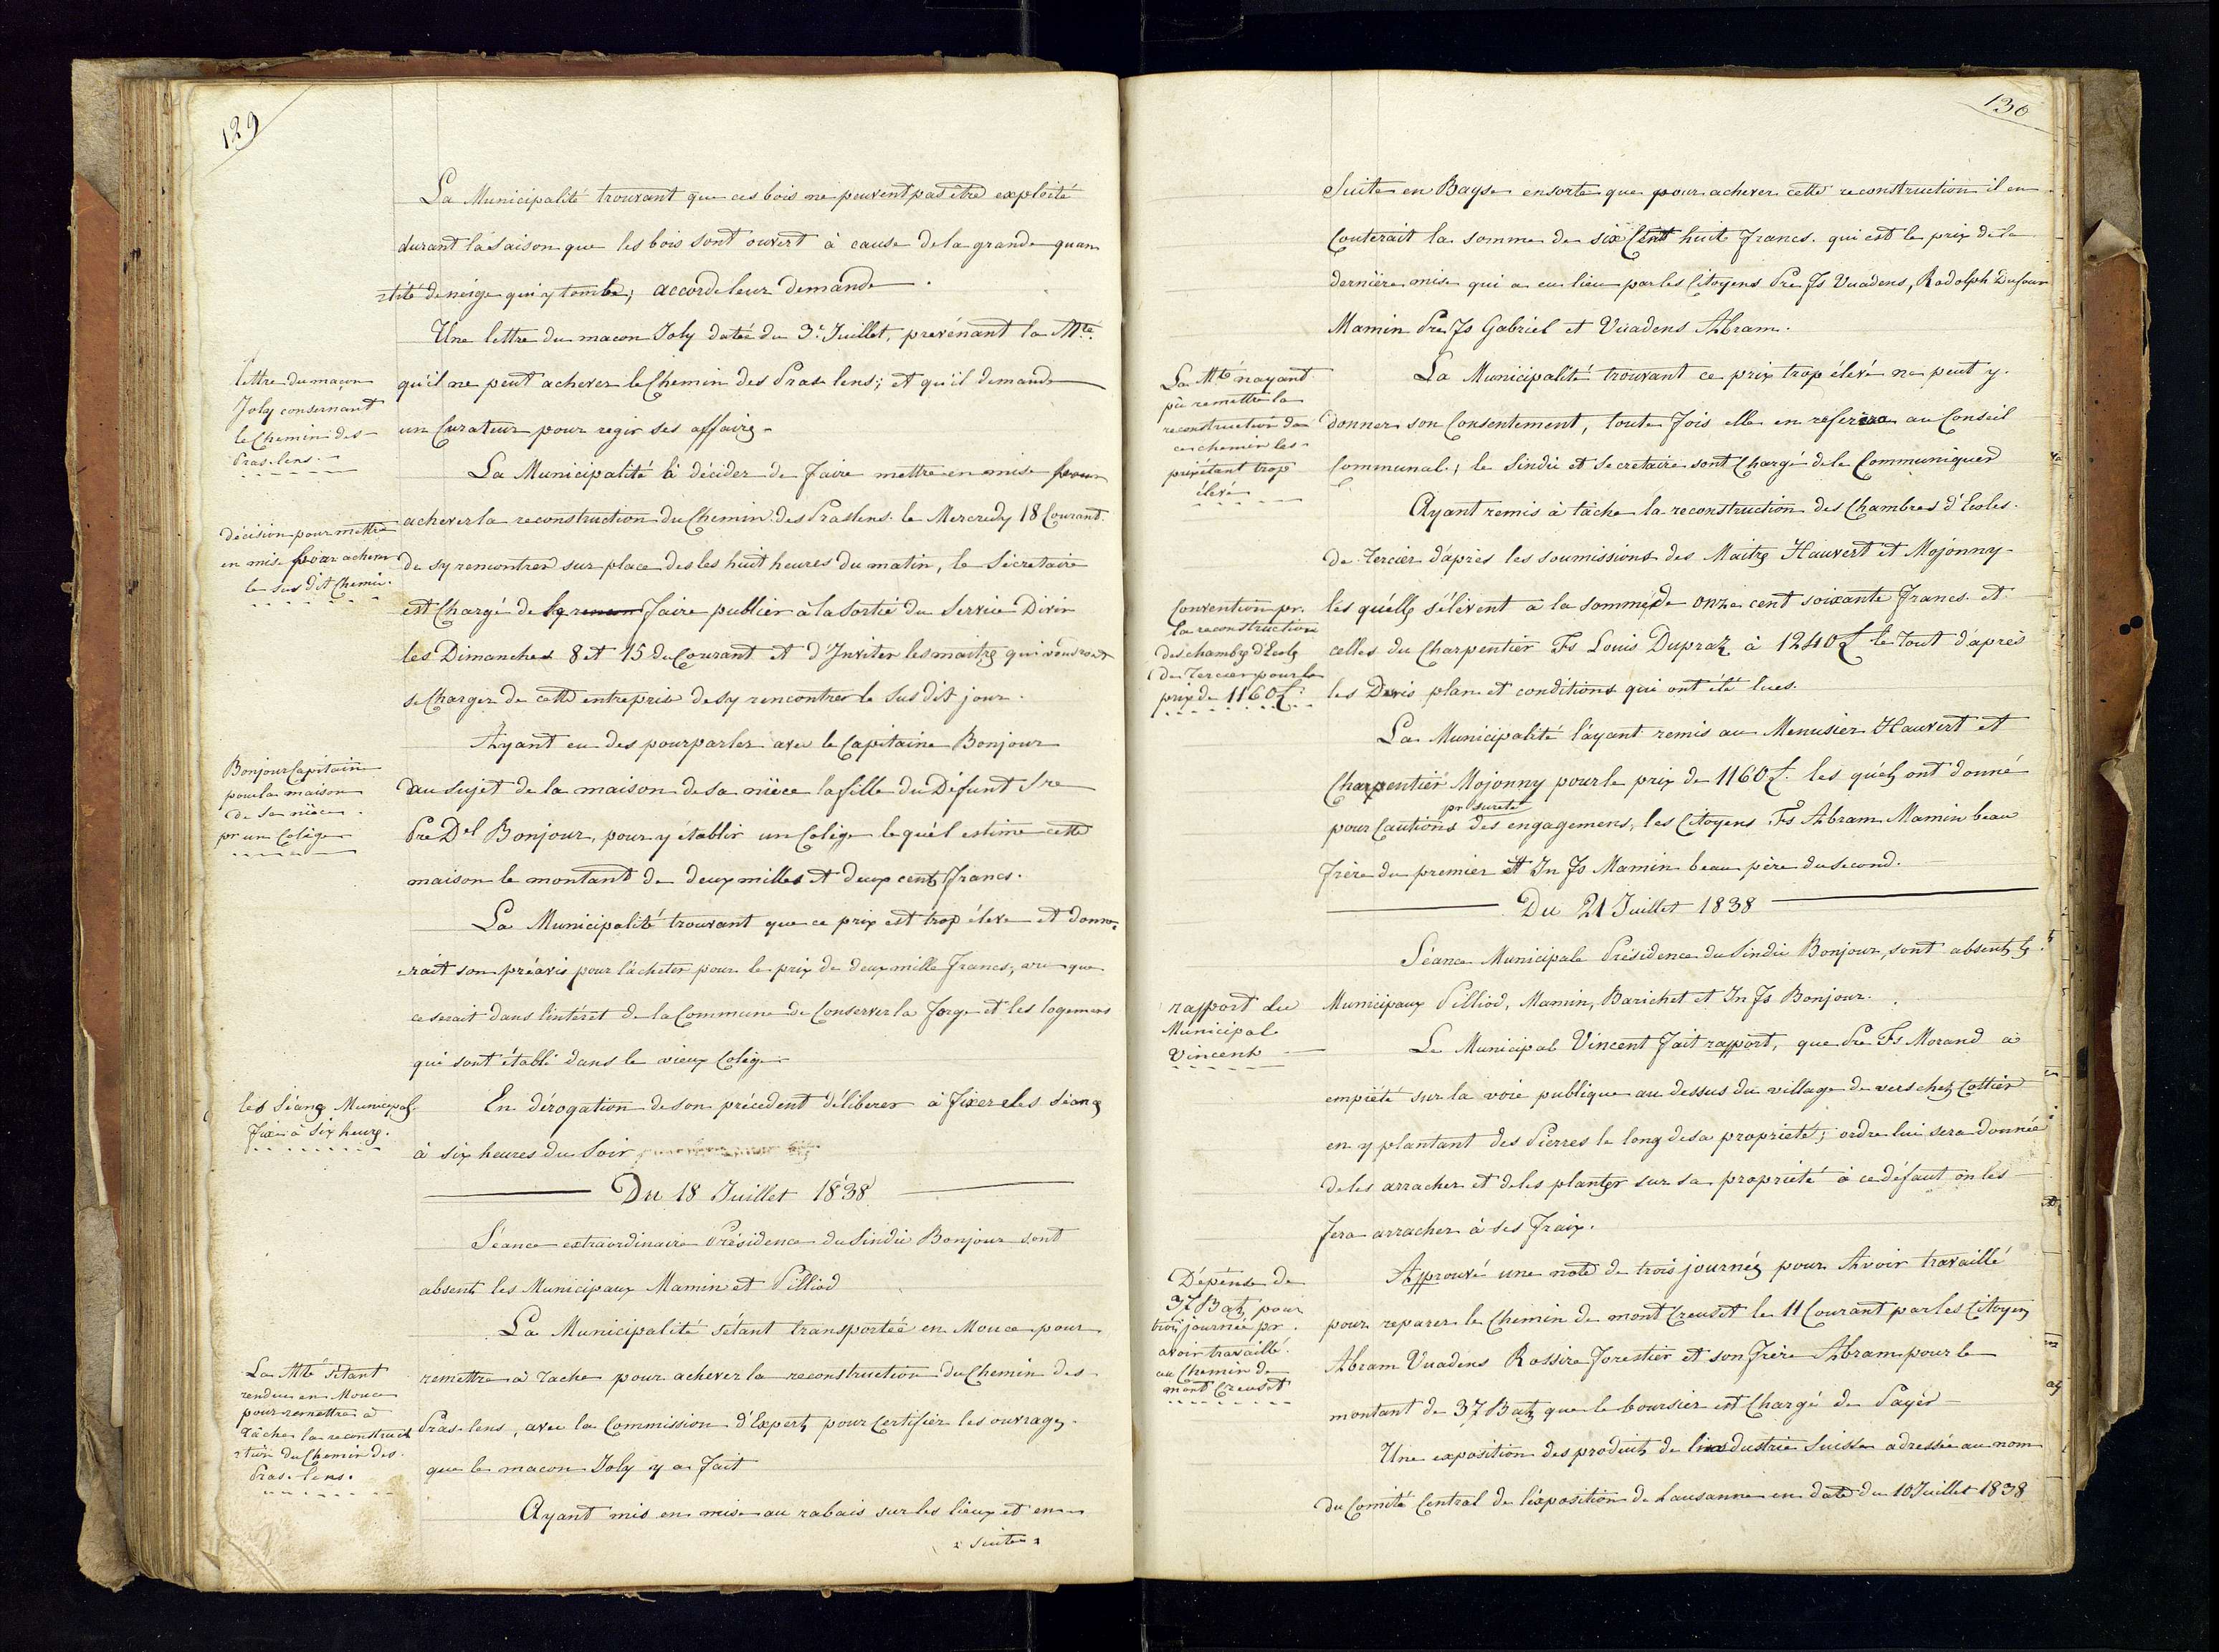 129
La Municipalité trouvant que ces bois ne peuvent pas être exploité
durant la saison que les bois sont ouvert à cause de la grande quan
tité de neige qui y tombe; accorde leur demande.
Une lettre du macon Joly datée du 3e Juillet, prevénant la Mté.
lettre du maçon
Joly consernant
le Chemin des
Pras-lens.
qu'il ne peut achever le Chemin des Pras lens; et qu'il demande
un Curateur pour regir ses affaires
La Municipalité à décider de faire mettre en mise pour
décision pour mettre
en mise pour achever
le sus dit Chemin.
achever la reconstruction du Chemin des Praslens le Mercredy 18 Courant
de sy remontrer sur place des les huit heures du matin, le Sécretaire
est Chargé de faire publier à la sortié du Service Divin
les Dimanches 8 et 15 du Courant et d'Inviter les maitres qui voudront
se Charger de cette entreprise de sy rencontrer le Susdit jour.
Ayant eu des pourparler avec le Capitaine Bonjour
Bonjour Capitain
pour la maison
de sa nièce
pr un Colége
au sujet de la maison de sa nièce la fille du Défunt Sre
Pre Del Bonjour, pour y établir un Colége le quél estime cette
maison le montant de deux milles et deux cents francs.
La Municipalité trouvant que ce prix est trop élevé et donne
rait son préavis pour l'acheter pour le prix de deux mille francs, vu que
ce serait dans l'intéret de la Commune de Conserver la forge et les logemens
qui sont établi dans le vieux Colége
les Séances Municipal
fixé à six heures.
En dérogation de son précedent délibérer à fixer les Séances
à six heures du Soir
Du 18 Juillet 1838
Séance extraordinaire Présidence du Sindic Bonjour sont
absents les Municipaux Mamin et Pilliod
La Municipalité sétant transportée en Mouce pour
La Mté sétant
rendue en Mouce
pour remettre à
tâche la reconstruct
tion du Chemin des
Pras-lens.
remettre à tache pour achever la reconstruction du Chemin des
Pras-lens, avec la Commission d'Experts pour Certifiér les ouvrages
que le macon Joly y a fait
Ayant mis en mise au rabais sur les lieux et en
suite
130
Suite en Bayse ensorte que pour achever cette reconstruction il en
Couterait la somme de six Cent huit francs. qui est le prix de la
dernière mise qui a eu lieu par les Citoyens Pre Fs Vuadens, Rodolph Dufour
Mamin Pre Fs Gabriel et Vuadens Abram.
La Mté nayant
pû remettre la
reconstruction de
ce chemin les
prix étant trop
élevé
La Municipalité trouvant ce prix trop élévé ne peut y
donner son Consentement, toute fois elle en referera au Conseil
Communal, le Sindic et Secretaire sont Chargé de le Communiquer
Ayant remis à tâche la reconstruction des Chambres d'Ecoles
de Tercier d'après les soumissions des Maitres Hauvert et Mojonny
Convention pr.
la reconstruction
des chambres d'Ecoles
de Tercier pour le
prix de 1160 f.
les quélles sélèvent à la somme de onze cent soixante francs et
celles du Charpentier Fs Louis Dupraz à 1240 f le tout d'après
les Devis plan et conditions qui ont été lues.
La Municipalité l'ayant remis au Menusier Hauvert et
Charpentier Mojonny pour le prix de 1160 f. les quéls ont donné
pr sureté
pour Cautions des engagemens, les Citoyens Fs Abram Mamin beau
frère du premier et Jn Fs Mamin beau père du second.
Du 21 Juillet 1838
Séance Municipale Présidence du Sindic Bonjour, sont absents les
rapport du
Municipal
Vincent
Municipaux Pilliod, Mamin, Barichet et Jn Fs Bonjour.
Le Municipal Vincent fait rapport, que Pre Fs Morand à
empiété sur la voie publique au dessus du village de vers chez Cottier
en y plantant des Pierres le long de sa proprieté; ordre lui sera donnée
de les arracher et de les planter sur sa proprieté à ce défaut on les
fera arracher à ses fraix.
Dépense de
37 Batz pour
trois journée pr.
avoir travaillé.
au Chemin de
mont Creuset
Approuvé une note de trois journées pour Avoir travaillé
pour reparer le Chemin de mont Creuset le 11 Courant par les Citoyens
Abram Vuadens Rossire forestier et son frère Abram pour le
montant de 37 Batz que le boursier est Chargé de Payér
Une exposition des produits de l'industrie Suisse adressée au nom
du Comité Central de l'exposition de Lausanne en date du 10 Juillet 1838